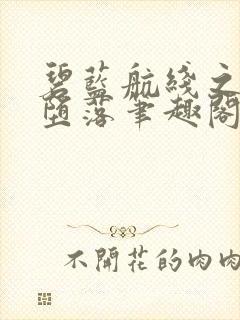 碧藍航綫之
墮落筆趣閣
不開花的肉肉